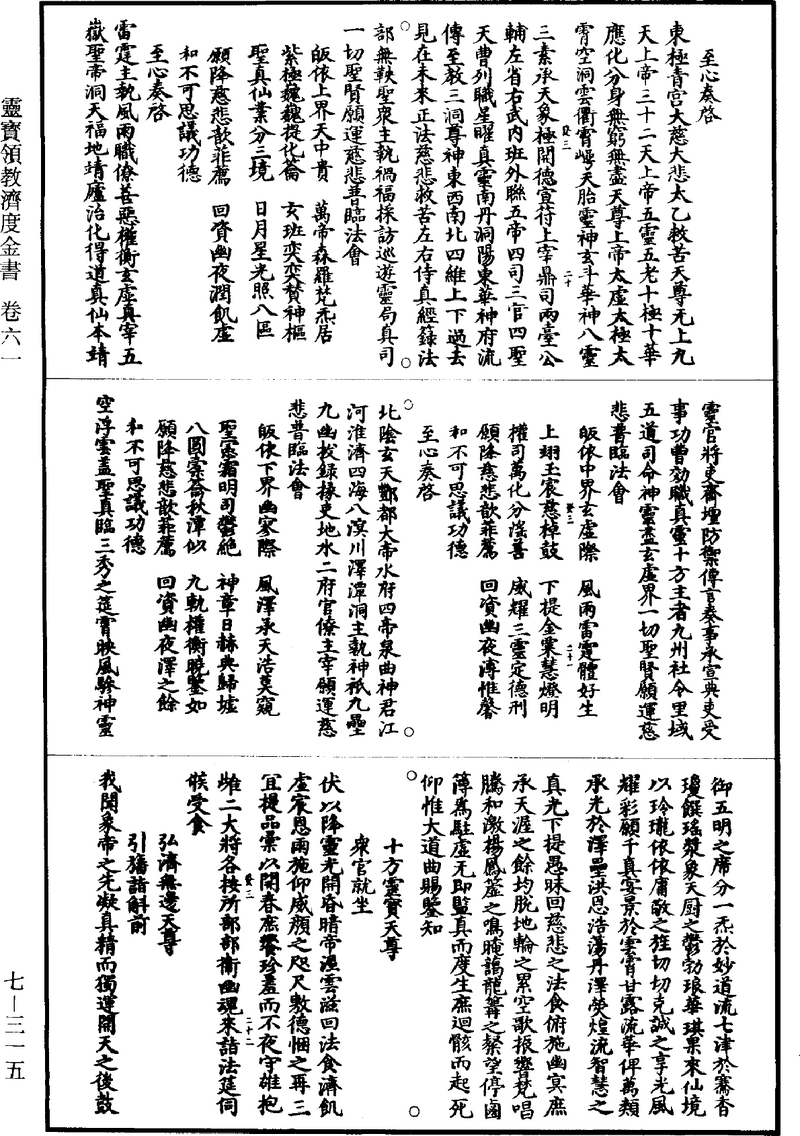 靈寶領教濟度金書 卷六一
七—三一五
至心奏啓
東極青宮大慈大悲太乙救苦天尊无上九
天上帝三十二天上帝五靈五老十極十華
應化分身無窮無盡天尊上帝太虛太極太
霄空洞雲衢霄㠊天胎靈神玄斗華神八靈
三素承天象極開德宣符上宰鼎司兩臺公
輔左省右武內班外聯五帝四司三官四聖
天曹列職星曜真靈南丹洞陽東華神府流
傳至教三洞尊神東西南北四維上下過去
見在未來正法慈悲救苦左右侍真經籙法
部無鞅聖衆主執禍福採訪巡遊靈局真司
一切聖賢願運慈悲普臨法會
皈依上界天中貴 萬帝森羅梵炁居
紫極巍巍提化籥 玄班奕奕賛神樞
聖真仙業分三境 日月星光照八區
願降慈悲歆菲薦 回資幽夜潤飢虛
和不可思議功德
至心奏啓
雷霆主執風雨職僚善惡權衡玄虛真宰五
嶽聖帝洞天福地靖廬治化得道真仙本靖
靈官將吏齋壇防禦傳言奏事承宣典吏受
事功曹効職真靈十方主者九州社令里域
五道司命神靈盡玄虛界一切聖賢願運慈
悲普臨法會
皈依中界玄虛際 風雨雷霆體好生
上翊玉宸慈棹鼓 下提金業慧燈明
權司萬化分滛善 威耀三靈定德刑
願降慈悲歆菲薦 回資幽夜溥惟馨
和不可思議功德
至心奏啓
北陰玄天酆都大帝水府四帝泉曲神君江
河淮濟四海八溟川澤潭洞主執神祇九壘
九幽校録掾吏地水二府官僚主宰願運慈
悲普臨法會
皈依下界幽冢際 風澤承天浩莫窺
聖宻霜明司鬱絶 神章日赫典歸墟
八圓橐籥秋潭似 九軌權衡曉鑒如
願降慈悲歆菲薦 回資幽夜澤之餘
和不可思議功德
空浮雲蓋聖真臨三秀之筵霄映風驂神靈
御五明之席分一炁於妙道流七津於騫香
瓊饌瑶漿象天厨之鬱勃琅華琪果來仙境
以玲瓏依依庸敬之狌切切克誠之享光風
耀彩願千真宴景於雲霄甘露流華俾萬類
承光於澤壘洪恩浩蕩丹澤熒煌流智慧之
真光下提愚昧回慈悲之法食俯施幽冥庶
承天渥之餘均脱地輪之累空歌振響梵唱
騰和激揚鳳蓋之鳴腌藹龍篝之粲望停鹵
簿爲駐虛无即監真而度生庶迴骸而起死
仰惟大道曲賜鑒知
十方靈寶天尊
衆官就坐
伏以降靈光開昏暗帝濕雲滋回法食濟飢
虛宸恩雨施仰威顏之咫尺敷德悃之再三
冝提品彙以開春庶饗珍羞而不夜守雄抱
雌二大將各按所部部衛幽魂來詣法筵伺
候受食
弘濟無邊天尊
引旛詣斛前
我聞象帝之先凝真精而獨運開天之後鼓